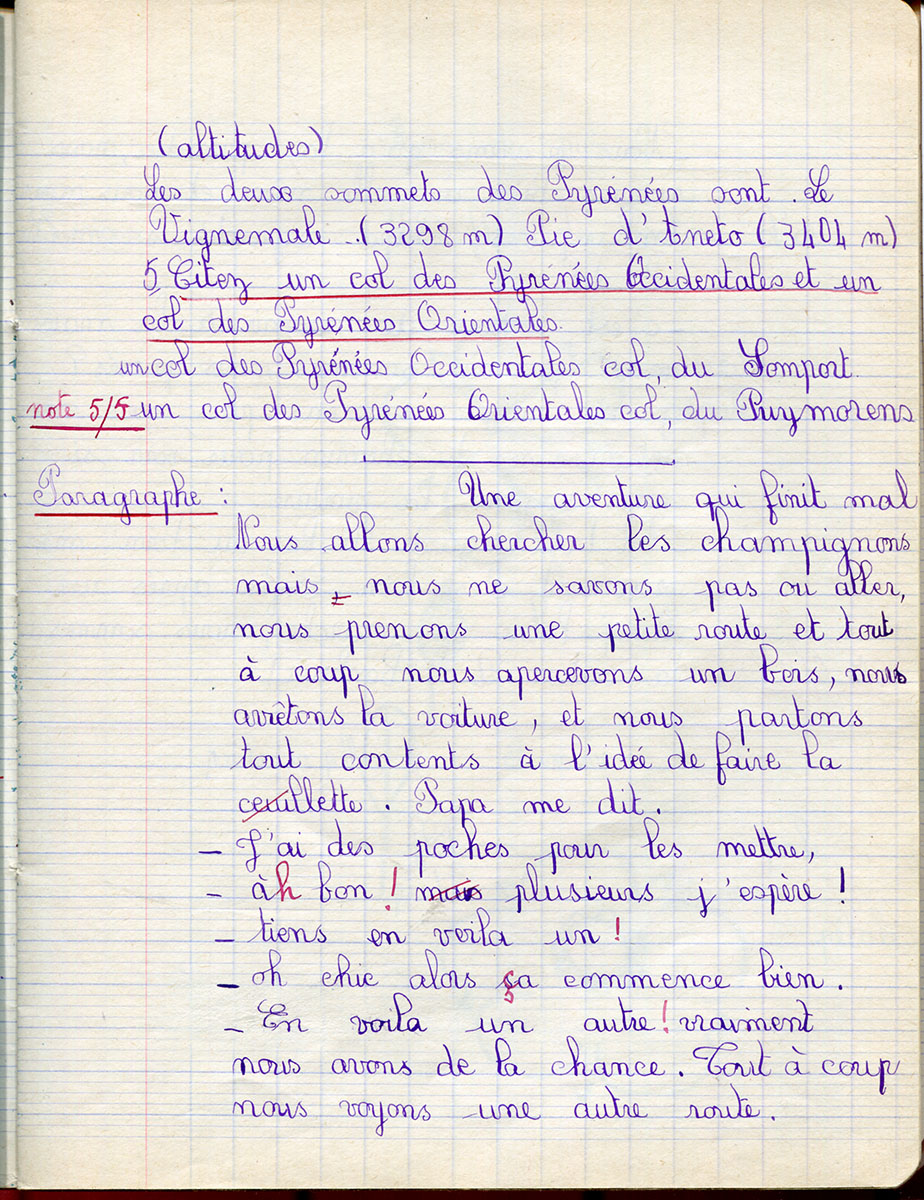 (altitudes)
Les deux sommets des Pyrénées sont . Le
Vignemale . . (3298 m) Pic d'Aneto (3404 m)
5 Citez un col des Pyrenées Occidentales et un
col des Pyrénées Orientales.
un col des Pyrénées Occidentales col, du Somport.
note 5/5 un col des Pyrénées Orientales col, du Puymorens
Paragraphe : Une aventure qui finit mal
Nous allons chercher les champignons
mais nous ne savons pas ou aller,
nous prenons une petite route et tout
à coup nous apercevons un bois, nous
arrêtons la voiture, et nous partons
tout contents à l'idée de faire la
ceuillette. Papa me dit.
- J'ai des poches pour les mettre,
- àh bon ! mais plusieurs j'espère !
- tiens en voila un !
- oh chic alors ça commence bien.
- En voila un autre ! vraiment
nous avons de la chance. Tout à coup
nous voyons une autre route.